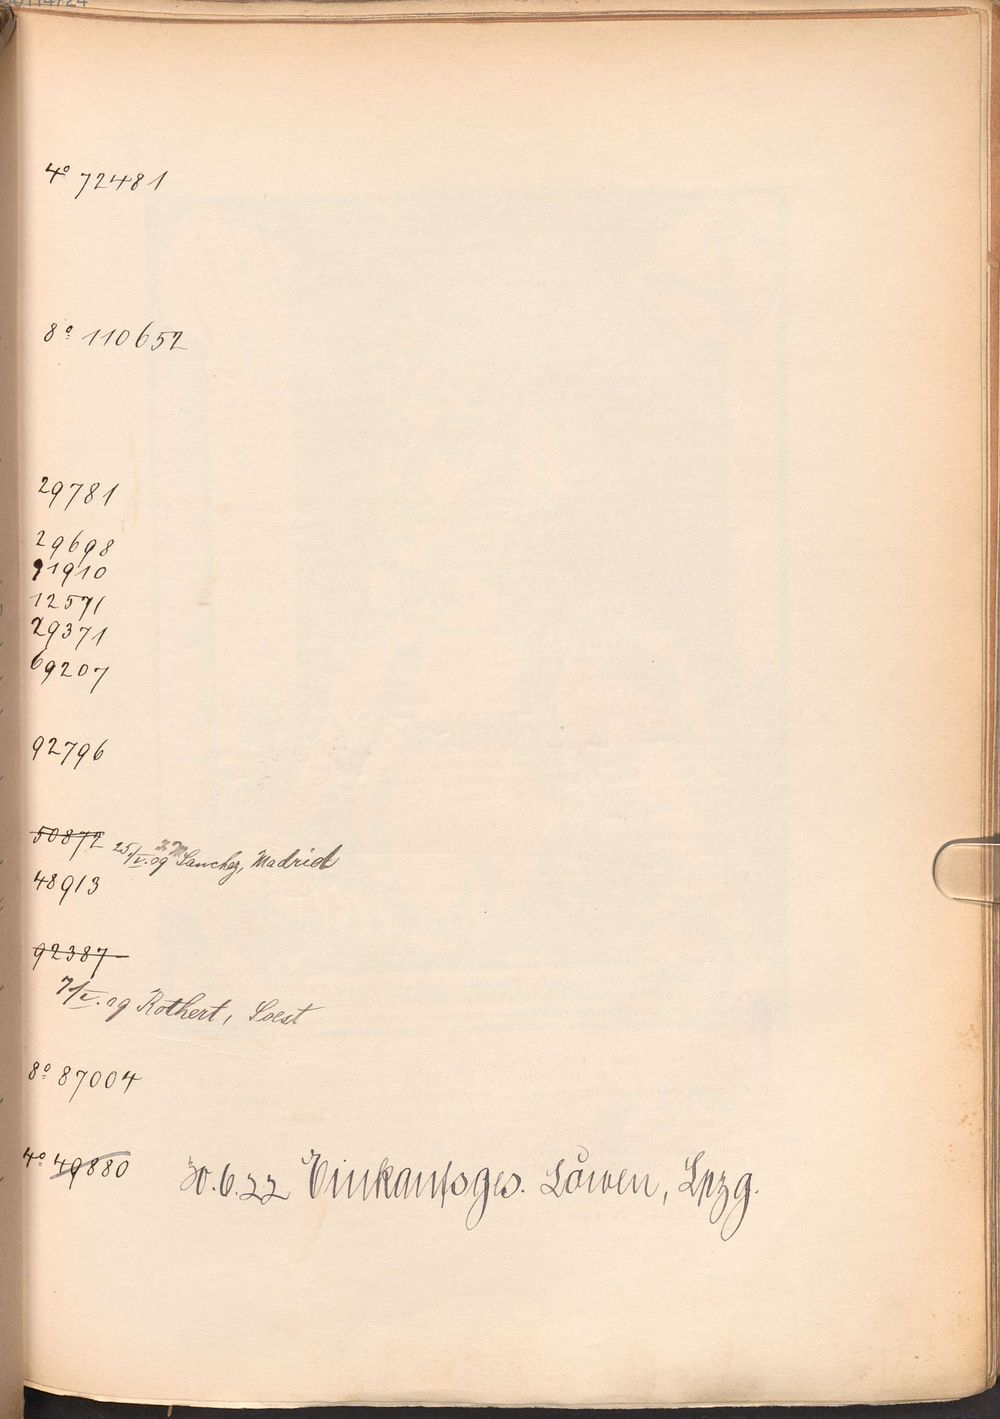 4º 72481
8º 110652
29781
29698
91910
12571
29371
69207
92796
50872 25/V.09 J.M. Sanchez, Madrid
48913
92387
7/V.09 Rothert, Soest
8º 87004
4º 49880 30.6.22 Einkaufsges. Löwen, Lpzg.